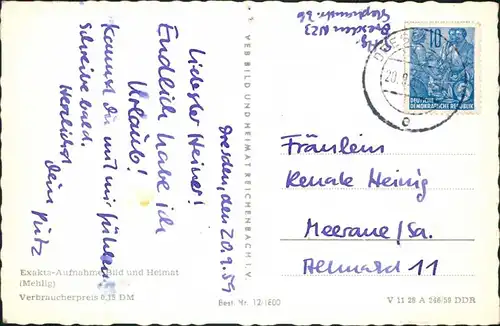 Dresden, den 20.9.59
Liebster Heiner!
Endlich habe ich
Urlaub!
Kannst du mit mir fühlen.
Schreibe bald.
Herzlichst
Dein Putz
Exakta-Aufnahme Bild und Heimat
(Mehlig)
Verbraucherpreis 0,15 DM
VEB BILD UND HEIMAT REICHENBACH I. V.
Best. Nr. 12/1600
Dresden N23
10
DEUTSCHE
DEMOKRATISCHE REPUBLIK
Fräulein
Renate Heinig
Meerane/Sa.
Altmarkt 11
V 11 28 A 248/59 DDR